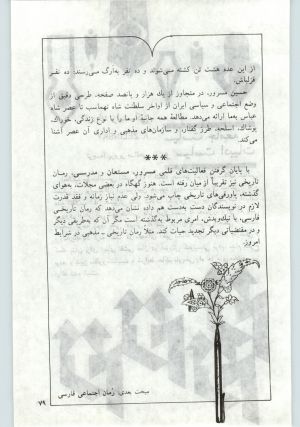 از این عده هشت تن کشته می‌شوند و ده نفر به‌ارگ می‌رسند: ده نفر
قزلباش.
حسین مسرور، در متجاوز از یک هزار و پانصد صفحه، طرحی دقیق از
وضع اجتماعی و سیاسی ایران از اواخر سلطنت شاه تهماسب تا عصر شاه
عباس به‌ما ارائه می‌دهد. مطالعهٔ همه جانبهٔ او ما را با نوع زندگی، خوراک،
پوشاک، اسلحه، طرز گفتار، و سازمان‌های مذهبی و اداری آن عصر آشنا
می‌کند.
***
با پایان گرفتن فعالیت‌های قلمی مسرور، مستعان و مدرسی، رمان
تاریخی نیز تقریباً از میان رفته است. هنوز گهگاه در بعضی مجلات، به‌هوای
گذشته، پاورقی‌های تاریخی چاپ می‌شود. ولی عدم نیاز زمانه و فقد قدرت
لازم در نویسندگان دست به‌دست هم داده نشان می‌دهد که رمان تاریخی
فارسی، با نیک‌وبدش، امری مربوط به‌گذشته است مگر آن که به‌طریقی دیگر
و در مقتضیاتی دیگر تجدید حیات کند. مثلاً رمان تاریخی ـ مذهبی در شرایط
امروز.
مبحث بعدی: رُمان اجتماعی فارسی
۷۹